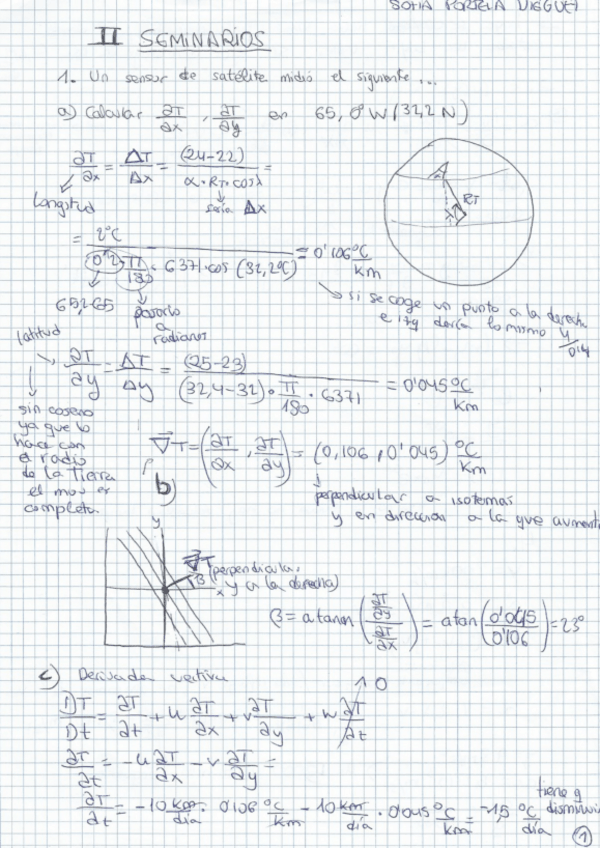 SOFIA PORTELA
II SEMINARIOS
1. Un sensor de satélite midió el siguiente...
a) Calcular ∂T/∂x , ∂T/∂y en 65,8W (32,2 N)
∂T/∂x = ΔT/Δx = (24-22)/(α·R_T·cosλ) =
Longitud
sería Δx
R_T
= 2°C/(0'2·π/180·6371·cos(32,2°C)) = 0'106 °C/km
pasarlo a radianes
si se coge un punto a la derecha
e izq daría lo mismo 4/0'4
latitud
∂T/∂y = ΔT/Δy = (25-23)/((32,4-32)·π/180·6371) = 0'045 °C/km
sin coseno
ya que lo
hace con
el radio
de la Tierra
completa
∇T = (∂T/∂x , ∂T/∂y) = (0,106 , 0'045) °C/km
b)
perpendicular a isotermas
y en dirección a la que aumenta
y
∇T (perpendicular
β
x y a la derecha)
β = atan (∂T/∂y / ∂T/∂x) = atan (0'045/0'106) = 23°
c) Derivada
DT/Dt = ∂T/∂t + u ∂T/∂x + v ∂T/∂y + w ∂T/∂z
0
∂T/∂t = -u ∂T/∂x - v ∂T/∂y =
∂T/∂t = -10 km/día · 0'106 °C/km - 10 km/día · 0'045 °C/km = -1,5 °C/día
tiene q
disminuir
1